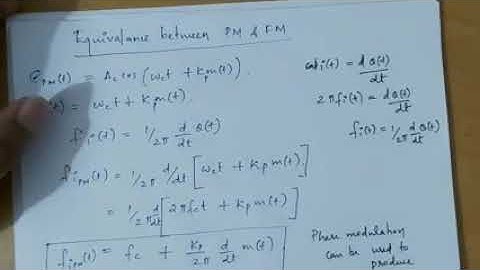 Equivalance between PM & FM
e_PM(t) = A_c cos(ω_c t + K_p m(t)).
(t) = ω_c t + K_p m(t).
f_i(t) = 1/2π d/dt θ(t)
f_iPM(t) = 1/2π d/dt [ω_c t + K_p m(t)]
= 1/2π d/dt [2πf_c t + K_p m(t)]
f_iPM(t) = f_c + K_p/2π d/dt m(t)
ω_i(t) = dθ(t)/dt
2πf_i(t) = dθ(t)/dt
f_i(t) = 1/2π d/dt θ(t)
Phase modulation
can be used to
produce